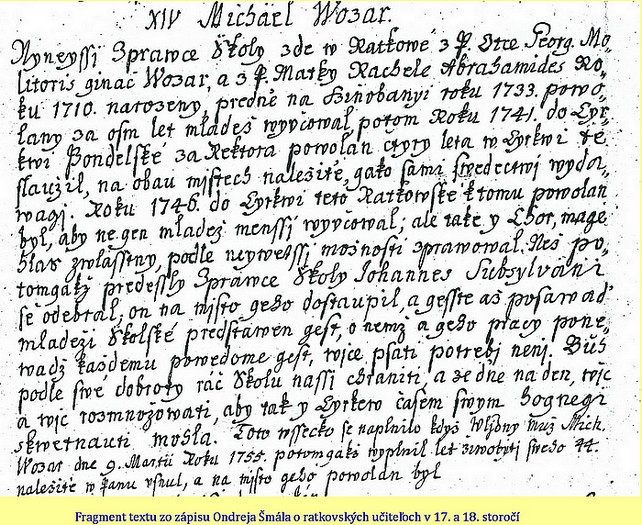 XIV Michael Wozar.
Nyneyssi Zprawce Školy zde w Ratkowé z P. Otce Georg. Mo-
litoris ginač Wozar, a z P. Matky Rachele Abrahamides Ro-
ku 1710. narozeny, předně na Ozinobanyi roku 1733. powo-
lany za osm let mladež wyvčowal, potom Roku 1741. do Cyr-
kwi Pondelské za Rektora powolan čtyry leta w Cyrkwi té
slaužil, na obau mistech naležitě, gako sami swedectwi wyda-
wagi. Roku 1746. do Cyrkwi teto Ratkowské k tomu powolan
byl, aby negen mladež menssi wyvčowal; ale také y Chor, mage
hlas zwlasstny, podle neywessi možnosti zprawowal. Než po-
tomgakž předessly Zprawce Školy Johannes Subsylvani
se odebral, on na misto geho dostaupil, a gesste až posawad
mladeži školské předstawen gest, o nemž a geho pracy pone-
wadž každemu powedome gest, wice psati potrebj neni. Bůh
podle swé dobroty rač školu nassi chraniti, a ze dne na den, wic
a wic rozmnožowati, aby tak y Cyrkew časem swym hognegi
skwetnauti mohla. Toto wssecko se naplnilo když Muž Mich.
Wozar dne 9. Martii Roku 1755. potomgakž wyplnil let žiwobyti sweho 44.
naležite w Panu vsnul, a na misto geho powolan byl
Fragment textu zo zápisu Ondreja Šmála o ratkovských učiteľoch v 17. a 18. storočí